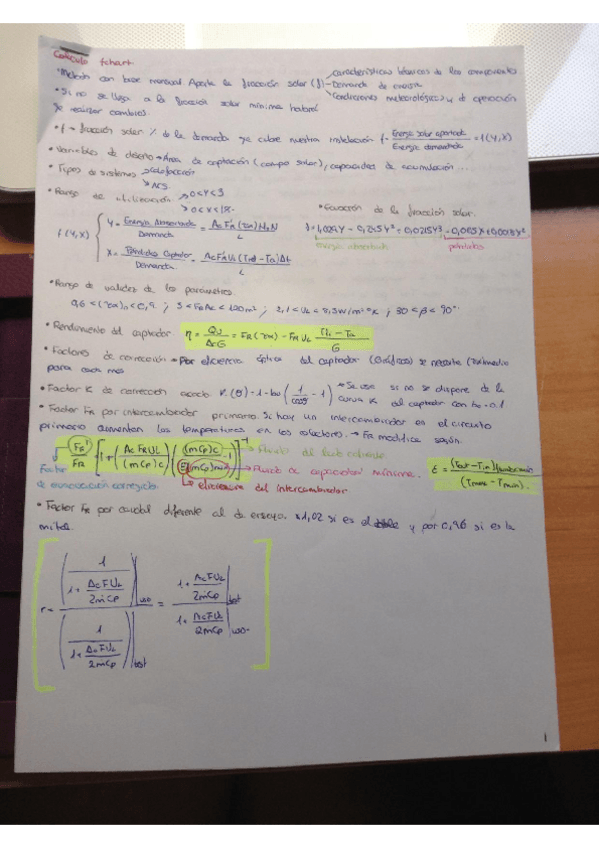 Cálculo fchart:
• Método con base mensual. Aporta la fracción solar (f) - características básicas de los componentes
- Demanda de energía
- Condiciones meteorológicas y de operación
• Si no se llega a la fracción solar mínima habrá
que realizar cambios.
• f → fracción solar % de la demanda que cubre nuestra instalación f = Energía solar aportada / Energía demandada = f(Y,X)
• Variables de diseño → Área de captación (campo solar), capacidades de acumulación ...
• Tipos de sistemas → Calefacción
→ ACS
• Rango de utilización → 0<Y<3
→ 0<X<18
• Ecuación de la fracción solar.
f(Y,X) { Y = Energía Absorbida / Demanda = Ac FR (τα) Ht N / L
f = 1,029Y - 0,245Y² + 0,0215Y³ - 0,065X + 0,0018X²
energía absorbida
pérdidas
X = Pérdidas Captador / Demanda = Ac FR UL (Tref - Ta) Δt / L
• Rango de validez de los parámetros.
0,6 < (τα)n < 0,9 ; 5 < FRAc < 120 m² ; 2,1 < UL < 8,3 W/m² ºK ; 30 < β < 90º
• Rendimiento del captador η = Qu / AcG = FR (τα) - FR UL (Ti - Ta) / G
• Factores de corrección → Por eficiencia óptica del captador (Gráficos) se necesita (τα) medio
para cada mes
• Factor K de corrección K(θ) = 1 - bo (1/cosθ - 1) • Se usa si no se dispone de la
curva K del captador con bo = 0.1
• Factor FR por intercambiador primario. Si hay un intercambiador en el circuito
primario aumentan las temperaturas en los colectores. → FR modifica según:
FR' / FR = [1 + (Ac FR UL / (mCp)c) ((mCp)c / ε(mCp)min - 1)]⁻¹ → Fluido del lado caliente
→ Fluido de capacidad mínima.
ε = (Tout - Tin) / (Tmax - Tmin)
Factor
de corregido
→ eficiencia del intercambiador
• Factor FR por caudal diferente al de ensayo. x1,02 si es el doble y por 0,96 si es la
mitad.
r = (1 / (1 + Ac F UL / 2mCp))|uso / (1 / (1 + Ac F UL / 2mCp))|test = (1 + Ac F UL / 2mCp)|test / (1 + Ac F UL / 2mCp)|uso
1